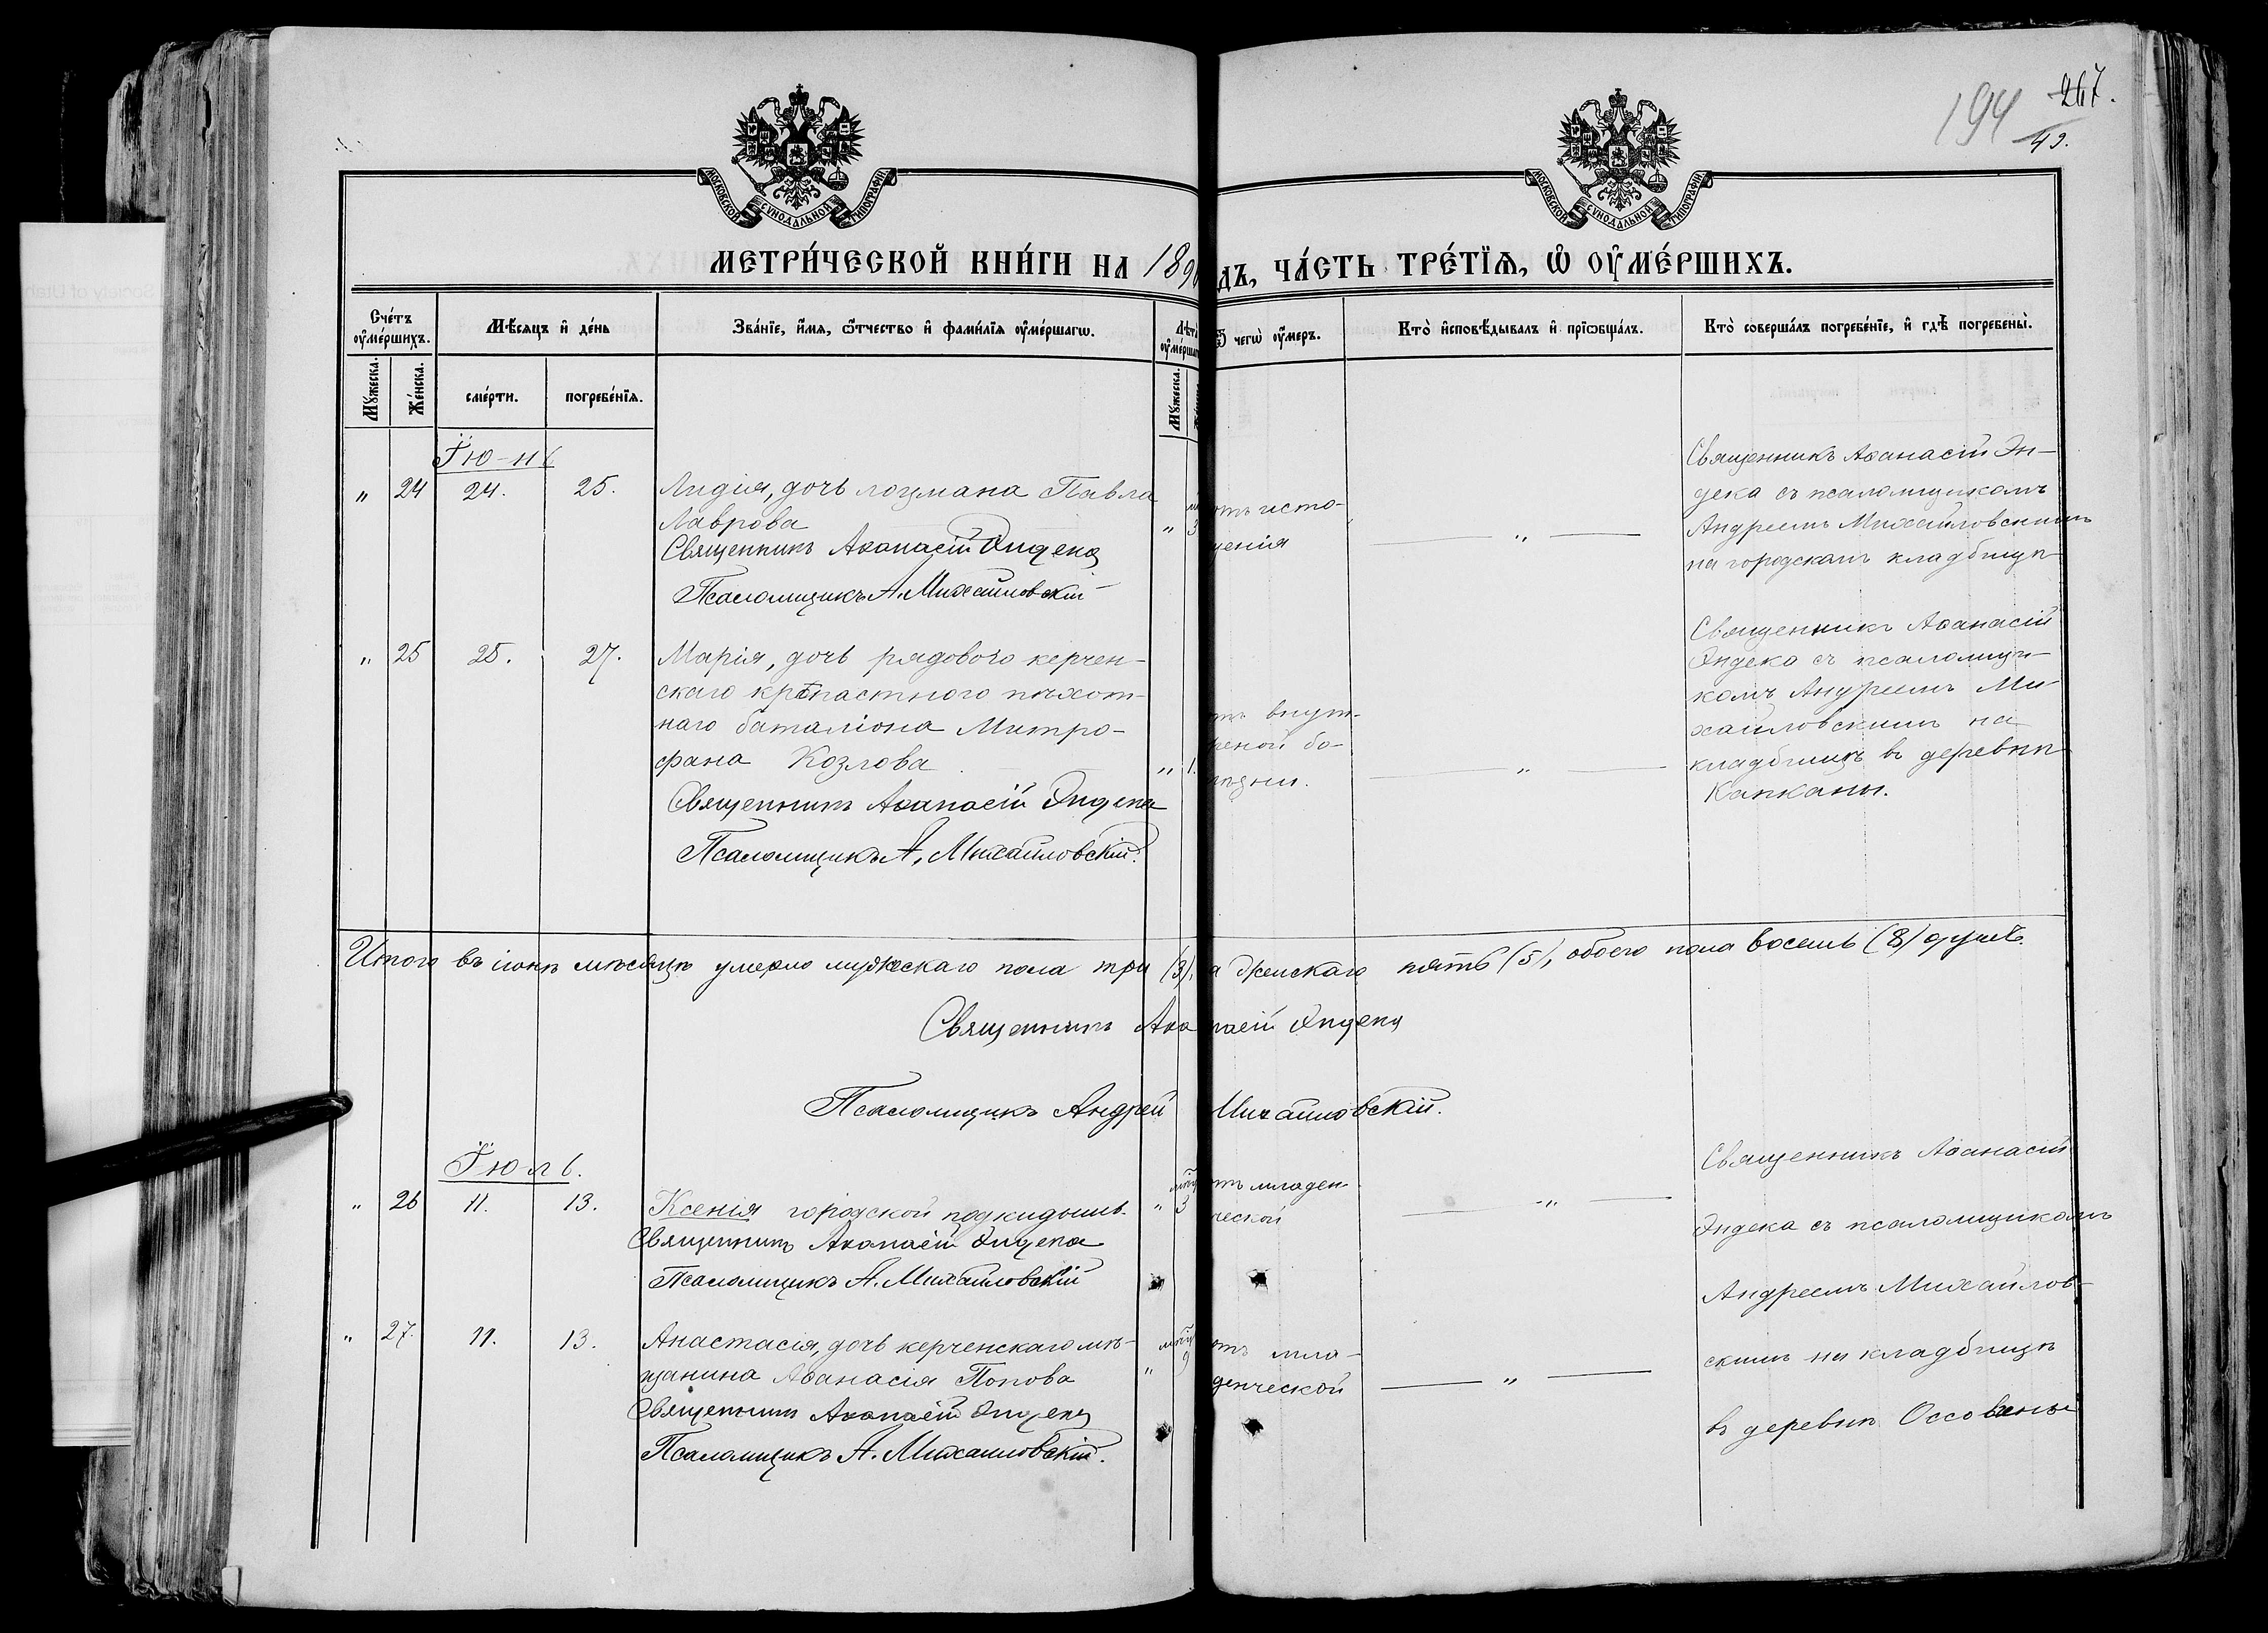 194 267.
43.
МОСКОВСКОЙ СѴНОДАЛЬНОЙ ТИПОГРАФІИ
МОСКОВСКОЙ СѴНОДАЛЬНОЙ ТИПОГРАФІИ
МЕТРИ́ЧЕСКОЙ КНИ́ГИ НА 189
дъ, ЧА́СТЬ ТРЕ́ТЇѦ, Ѿ ОУМЕ́РШИХЪ.
Сче́тъ оумершихъ.
Мѣсяцъ и де́нь
Зва́нїе, и́мя, ѻ҆́тчество и фами́лїя оуме́ршагѡ.
Лѣт
оуме́рша
Ѿ чегѡ̀ оу́меръ.
Кто̀ исповѣ́дывалъ и прїѡбща́лъ.
Кто̀ соверша́лъ погребе́нїе, и гдѣ̀ погребены̀.
Му́жеска.
Же́нска.
сме́рти.
погребе́нїя.
Му́жеска.
Іюнь
„ 24 24. 25.
Лидія, дочь лоцмана Павла
Лаврова
Священникъ Аѳанасій Эндека
Псаломщикъ А. Михайловскій
„ 3
отъ исто-
щенія
„
Священникъ Аѳанасій Эн-
дека съ псаломщикомъ
Андреемъ Михайловскимъ
на городскомъ кладбищѣ
„ 25 25. 27.
Марія, дочь рядового керчен-
скаго крѣпастного пѣхот-
наго баталіона Митро-
фана Козлова
„ 1.
Священникъ Аѳанасій Эндека
Псаломщикъ А. Михайловскій.
отъ внут-
реной бо-
лѣзни.
„
Священникъ Аѳанасій
Эндека съ псаломщи-
комъ Андреемъ Ми-
хайловскимъ на
кладбищѣ въ деревнѣ
Капканы.
Итого въ іюнѣ мѣсяцѣ умерло мужескаго пола три (3), а женскаго пять (5), обоего пола восемь (8) душъ.
Священникъ Аѳанасій Эндека
Псаломщикъ Андрей Михайловскій.
Іюль.
„ 26 11. 13.
Ксенія городской подкидышъ.
Священникъ Аѳанасій Эндека
Псаломщикъ А. Михайловскій
„ 3
отъ младен-
ческой
„
Священникъ Аѳанасій
Эндека съ псаломщикомъ
Андреемъ Михайлов-
скимъ на кладбищѣ
въ деревнѣ Оссовины
„ 27. 11. 13.
Анастасія, дочь керченскаго мѣ-
щанина Аѳанасія Попова
Священникъ Аѳанасій Эндека
Псаломщикъ А. Михайловскій.
„ 9
отъ мла-
денческой
„